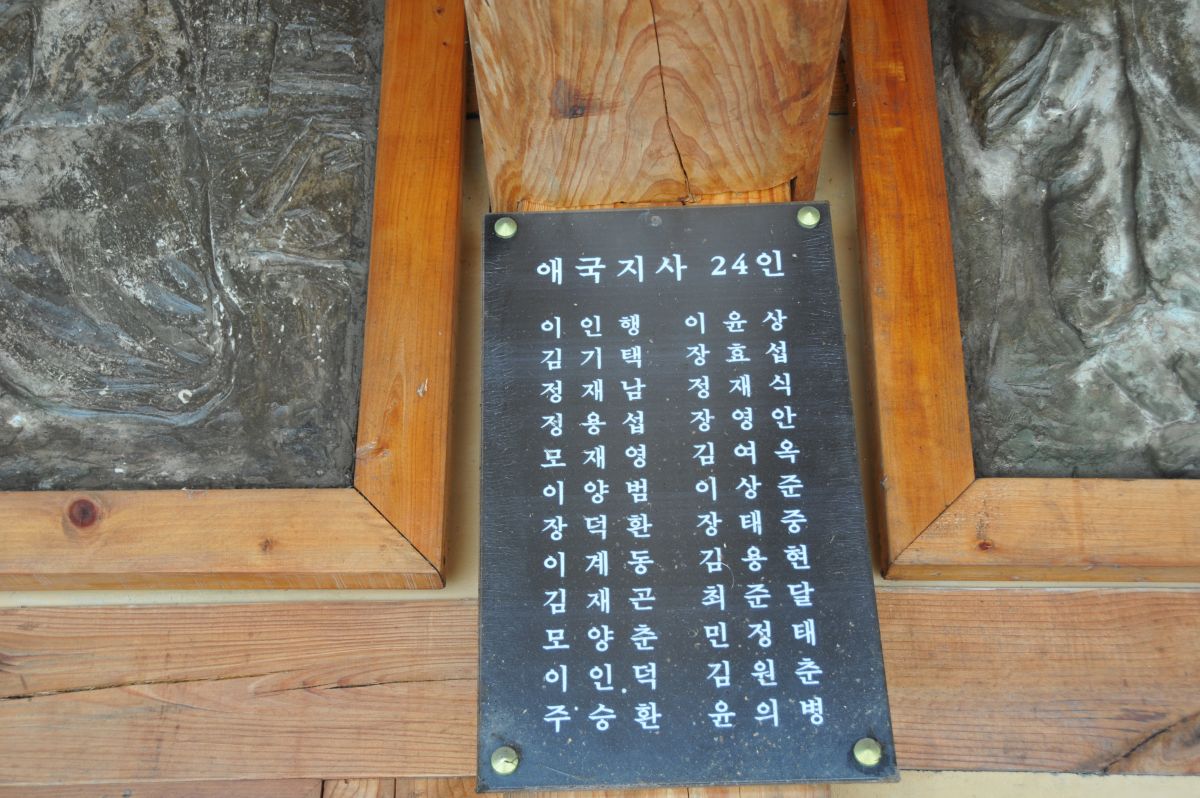 애국지사 24인
이인행 이윤상
김기택 장효섭
정재남 정재식
정용섭 장영안
모재영 김여옥
이양범 이상준
장덕환 장태중
이계동 김용현
김재곤 최준달
모양춘 민정태
이인덕 김원춘
주승환 윤의병